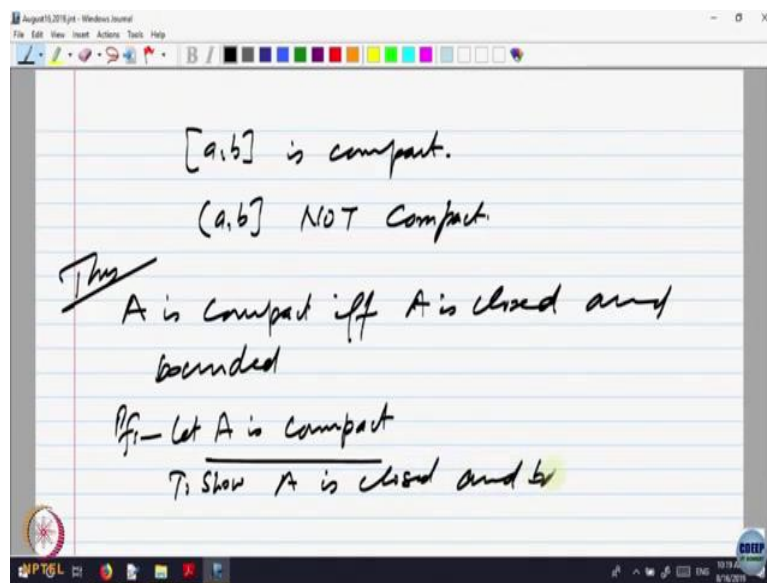 August16,2019.jnt - Windows Journal
File Edit View Insert Actions Tools Help
B I
[a,b] is compact.
(a,b] NOT Compact.
Thm
A is compact iff A is closed and
bounded
Pf:- Let A is compact
To Show A is closed and b
NPTEL
CDEEP
ENG
8/16/2019